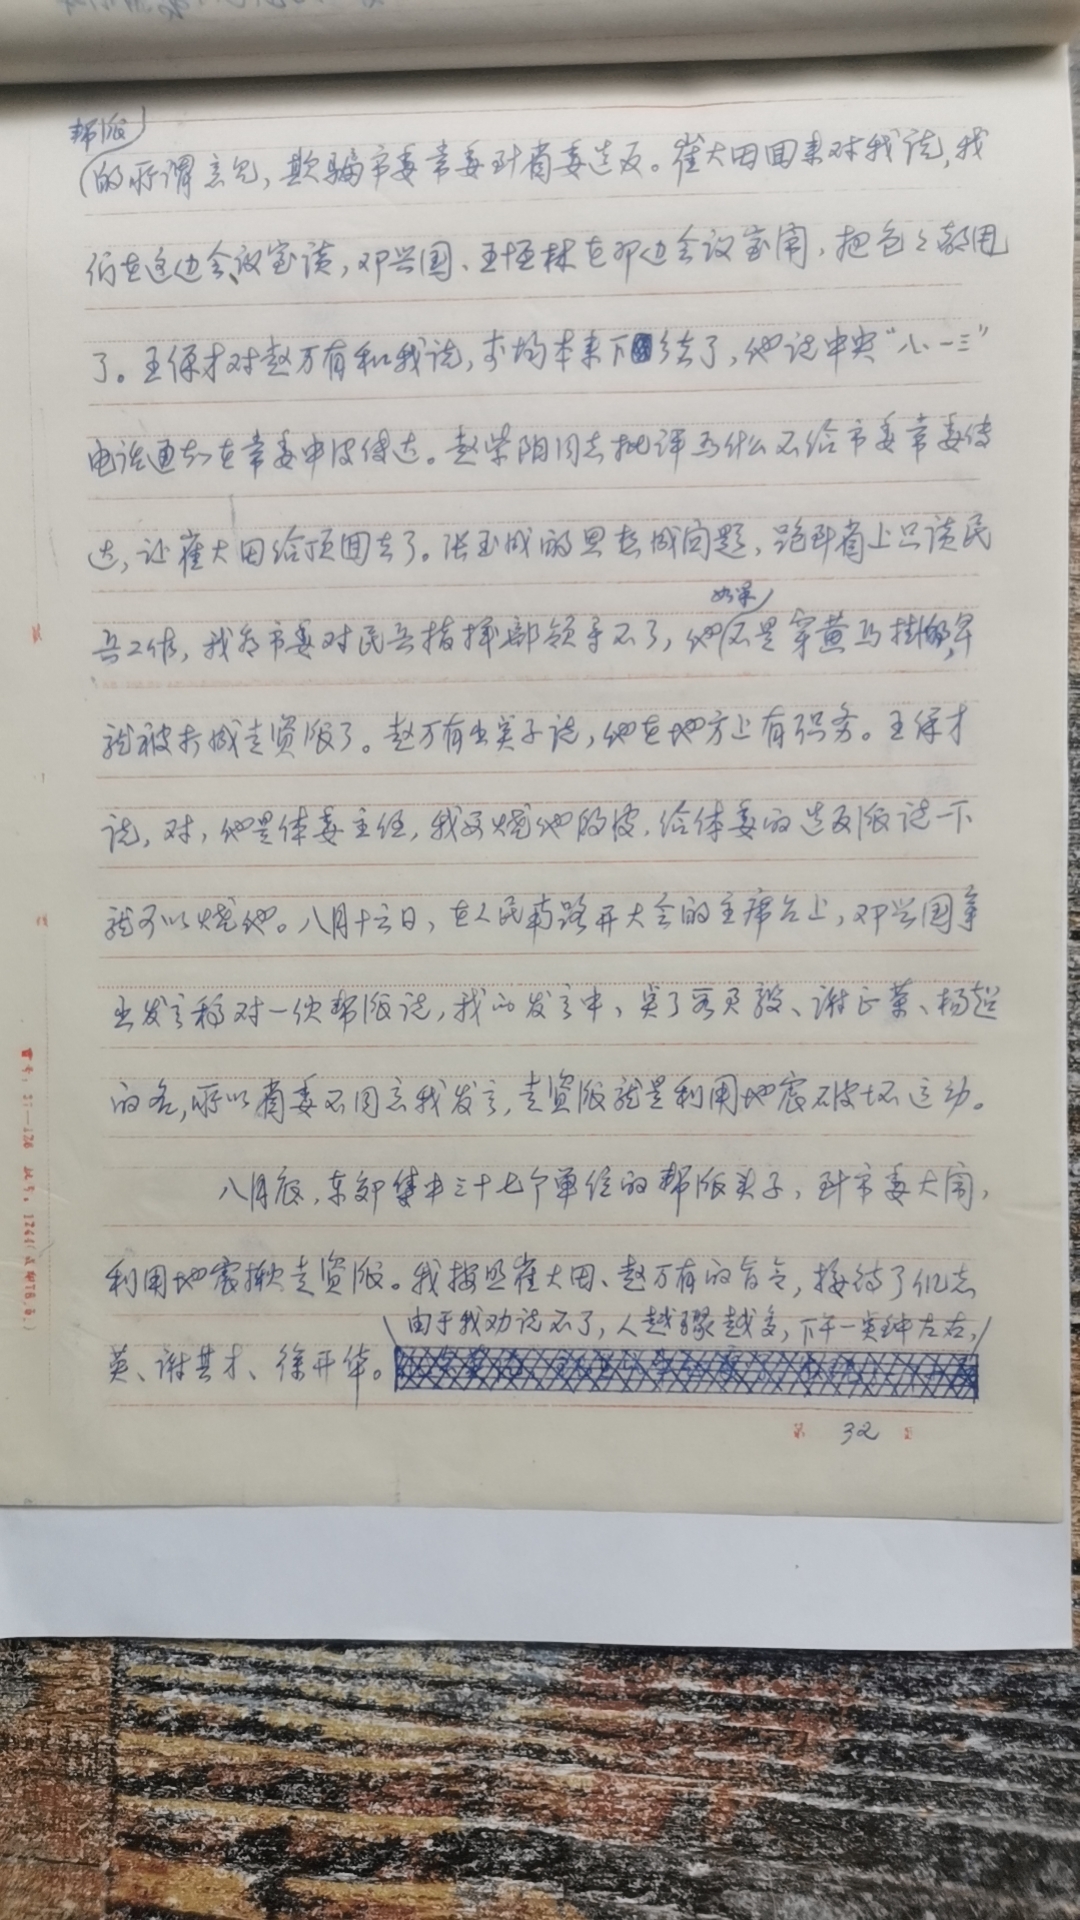 帮派
的所谓意见，欺骗市委常委到省委造反。崔大田回来对我说，我
们在这边会议室谈，邓兴国、王恒林在那边会议室闹，把包包都甩
了。王保才对赵万有和我说，李均本来下去了，他说中央“八·一三”
电话通知在常委中没传达。赵紫阳同志批评为什么不给市委常委传
达，让崔大田给顶回去了。张玉成的思想成问题，跑到省上只谈民
兵工作，我看市委对民兵指挥部领导不了，他
如果
不是穿黄马掛的，早
就被打成走资派了。赵万有出点子说，他在地方上有职务。王保才
说，对，他是体委主任，我要烧他的皮，给体委的造反派说一下
就可以烧他。八月十六日，在人民南路开大会的主席台上，邓兴国拿
出发言稿对一伙帮派说，我的发言中，点了段君毅、谢正荣、杨超
的名，所以省委不同意我发言，走资派就是利用地震破坏运动。
八月底，东郊集中三十七个单位的帮派头子，到市委大闹，
利用地震揪走资派。我按照崔大田、赵万有的旨令，接待了伍志
由于我劝说不了，人越聚越多，下午一点钟左右，
英、谢其才、徐开华。
第 32 页